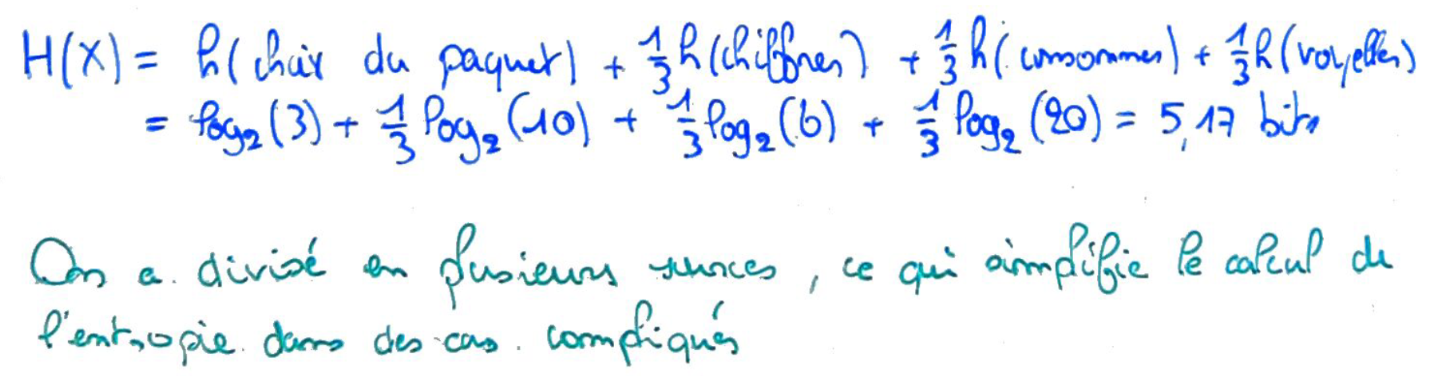 H(X) = h(choix du paquet) + 1/3 h(chiffres) + 1/3 h(consonnes) + 1/3 h(voyelles)
= log₂(3) + 1/3 log₂(10) + 1/3 log₂(6) + 1/3 log₂(20) = 5,17 bits
On a divisé en plusieurs sources, ce qui simplifie le calcul de
l'entropie dans des cas compliqués